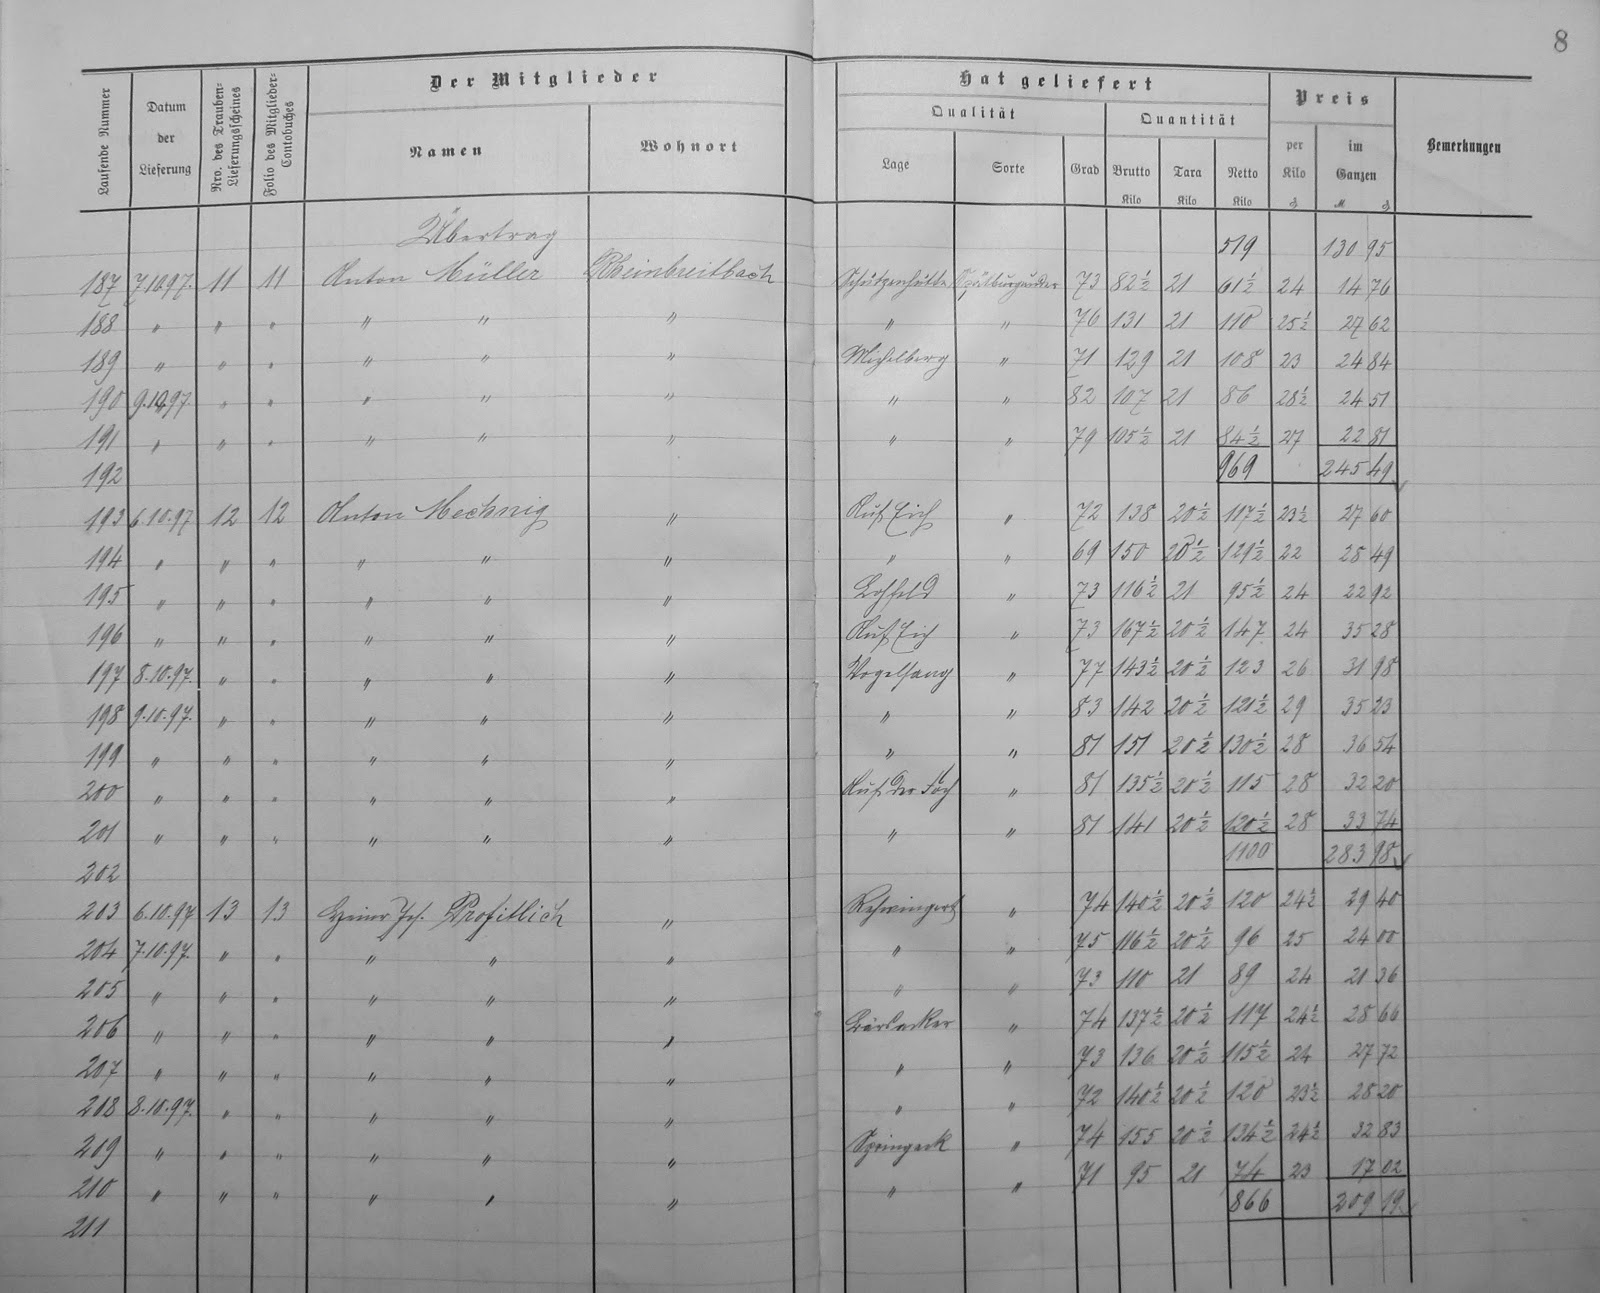 8
Der Mitglieder Hat geliefert Preis
Qualität Quantität
Laufende Nummer Datum der Lieferung Nro. des Trauben-Lieferungsscheines Folio des Mitglieder-Contobuches Namen Wohnort Lage Sorte Grad Brutto Kilo Tara Kilo Netto Kilo per Kilo ₰ im Ganzen M ₰ Bemerkungen
Übertrag 519 130 95
187 7.10.97. 11 11 Anton Müller Rheinbreitbach Schützenhütte Spätburgunder 73 82½ 21 61½ 24 14 76
188 " " " " " " " " 76 131 21 110 25½ 27 62
189 " " " " " " Michelberg " 71 129 21 108 23 24 84
190 9.10.97. " " " " " " " 82 107 21 86 28½ 24 51
191 " " " " " " " " 79 105½ 21 84½ 27 22 81
192 969 245 49
193 6.10.97 12 12 Anton Mechnig " Auf Eich " 72 138 20½ 117½ 23½ 27 60
194 " " " " " " " " 69 150 20½ 129½ 22 28 49
195 " " " " " " Lohfeld " 73 116½ 21 95½ 24 22 92
196 " " " " " " Auf Eich " 73 167½ 20½ 147 24 35 28
197 8.10.97. " " " " " Vogelsang " 77 143½ 20½ 123 26 31 98
198 9.10.97. " " " " " " " 83 142 20½ 121½ 29 35 23
199 " " " " " " " " 81 151 20½ 130½ 28 36 54
200 " " " " " " Auf der " 81 135½ 20½ 115 28 32 20
201 " " " " " " " " 81 141 20½ 120½ 28 33 74
202 1100 283 98
203 6.10.97 13 13 Heinr Jos. Profitlich " " 74 140½ 20½ 120 24½ 29 40
204 7.10.97 " " " " " " " 75 116½ 20½ 96 25 24 00
205 " " " " " " " " 73 110 21 89 24 21 36
206 " " " " " " " 74 137½ 20½ 117 24½ 28 66
207 " " " " " " " " 73 136 20½ 115½ 24 27 72
208 8.10.97. " " " " " " " 72 140½ 20½ 120 23½ 28 20
209 " " " " " " " 74 155 20½ 134½ 24½ 32 83
210 " " " " " " " " 71 95 21 74 23 17 02
211 866 209 19